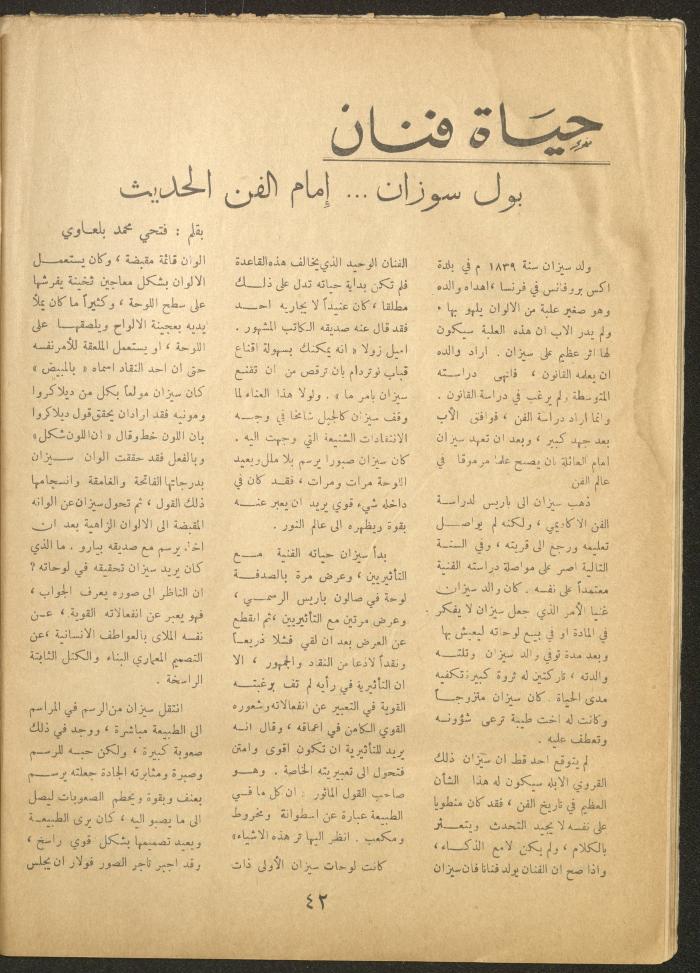 حياة فنان
بول سوزان ... إمام الفن الحديث
بقلم : فتحي محمد بلعاوي
ولد سيزان سنة ١٨٣٩ م في بلدة
اكس بروفانس في فرنسا ، اهداه والده
وهو صغير علبة من الالوان يلهو بها ،
ولم يدر الاب ان هذه العلبة سيكون
لها اثر عظيم على سيزان . اراد والده
ان يعلمه القانون ، فانهى دراسته
المتوسطة ولم يرغب في دراسة القانون .
وانما اراد دراسة الفن ، فوافق الأب
بعد جهد كبير ، وبعد ان تعهد سيزان
امام العائلة بان يصبح علما مرموقا في
عالم الفن
ذهب سيزان الى باريس لدراسة
الفن الاكاديمي ، ولكنه لم يواصل
تعليمه ورجع الى قريته ، وفي السنة
التالية اصر على مواصلة دراسته الفنية
معتمداً على نفسه . كان والد سيزان
غنيا الأمر الذي جعل سيزان لا يفكر
في المادة او في بيع لوحاته ليعيش بها
وبعد مدة توفي والد سيزان وتلته
والدته ، تاركتين له ثروة كبيرة تكفيه
مدى الحياة . كان سيزان متزوجاً
وكانت له اخت طيبة ترعى شؤونه
وتعطف عليه .
لم يتوقع احد قط ان سيزان ذلك
القروي الابله سيكون له هذا الشأن
العظيم في تاريخ الفن ، فقد كان منطويا
على نفسه لا يجيد التحدث ويتعثر
بالكلام ، ولم يكن لامع الذكاء ،
واذا صح ان الفنان يولد فنانا فان سيزان
الفنان الوحيد الذي يخالف هذه القاعدة
فلم تكن بداية حياته تدل على ذلك
مطلقا ، كان عنيداً لا يجاريه احد
فقد قال عنه صديقه الكاتب المشهور .
اميل زولا « انه يمكنك بسهولة اقناع
قباب نوتردام بان ترقص من ان تقنع
سيزان بامر ما » . ولولا هذا العناد لما
وقف سيزان كالجبل شامخا في وجه
الانتقادات الشنيعة التي وجهت اليه .
كان سيزان صبورا يرسم بلا ملل ويعيد
اللوحة مرات ومرات ، فقد كان في
داخله شيء قوي يريد ان يعبر عنه
بقوة ويظهره الى عالم النور .
بدأ سيزان حياته الفنية مع
التأثيريين ، وعرض مرة بالصدفة
لوحة في صالون باريس الرسمي ،
وعرض مرتين مع التأثيريين ، ثم انقطع
عن العرض بعد ان لقي فشلا ذريعاً
ونقداً لاذعا من النقاد والجمهور ، الا
ان التأثيرية في رأيه لم تف برغبته
القوية في التعبير عن انفعالاته وشعوره
القوي الكامن في اعماقه ، وقال انه
يريد للتأثيرية ان تكون اقوى وامتن
فتحول الى تعبيريته الخاصة . وهو
صاحب القول المأثور : ان كل ما في
الطبيعة عبارة عن اسطوانة ومخروط
ومكعب . انظر اليها تر هذه الاشياء»
كانت لوحات سيزان الأولى ذات
الوان قائمة مقبضة ، وكان يستعمل
الالوان بشكل معاجين ثخينة يفرشها
على سطح اللوحة ، وكثيراً ما كان يملأ
يديه بعجينة الالواح ويلصقها على
اللوحة ، او يستعمل الملعقة للأمر نفسه
حتى ان احد النقاد اسماه « بالمبيض »
كان سيزان مولعاً بكل من ديلاكروا
ومونيه فقد اراد ان يحقق قول ديلاكروا
بان اللون خط وقال « ان اللون شكل »
وبالفعل فقد حققت الوان سيزان
بدرجاتها الفاتحة والغامقة وانسجامها
ذلك القول ، ثم تحول سيزان عن الوانه
المقبضة الى الالوان الزاهية بعد ان
اخذ يرسم مع صديقه بيارو . ما الذي
كان يريد سيزان تحقيقه في لوحاته ؟
ان الناظر الى صوره يعرف الجواب ،
فهو يعبر عن انفعالاته القوية ، عن
نفسه الملأى بالعواطف الانسانية ، عن
التصميم المعماري البناء والكتل الثابتة
الراسخة .
انتقل سيزان من الرسم في المراسم
الى الطبيعة مباشرة ، ووجد في ذلك
صعوبة كبيرة ، ولكن حبه للرسم
وصبره ومثابرته الجادة جعلته يرسم
بعنف وبقوة ويحطم الصعوبات ليصل
الى ما يصبو اليه ، كان يرى الطبيعة
ويعيد تصميمها بشكل قوي راسخ ،
وقد اجبر تاجر الصور فولار ان يجلس
٤٢